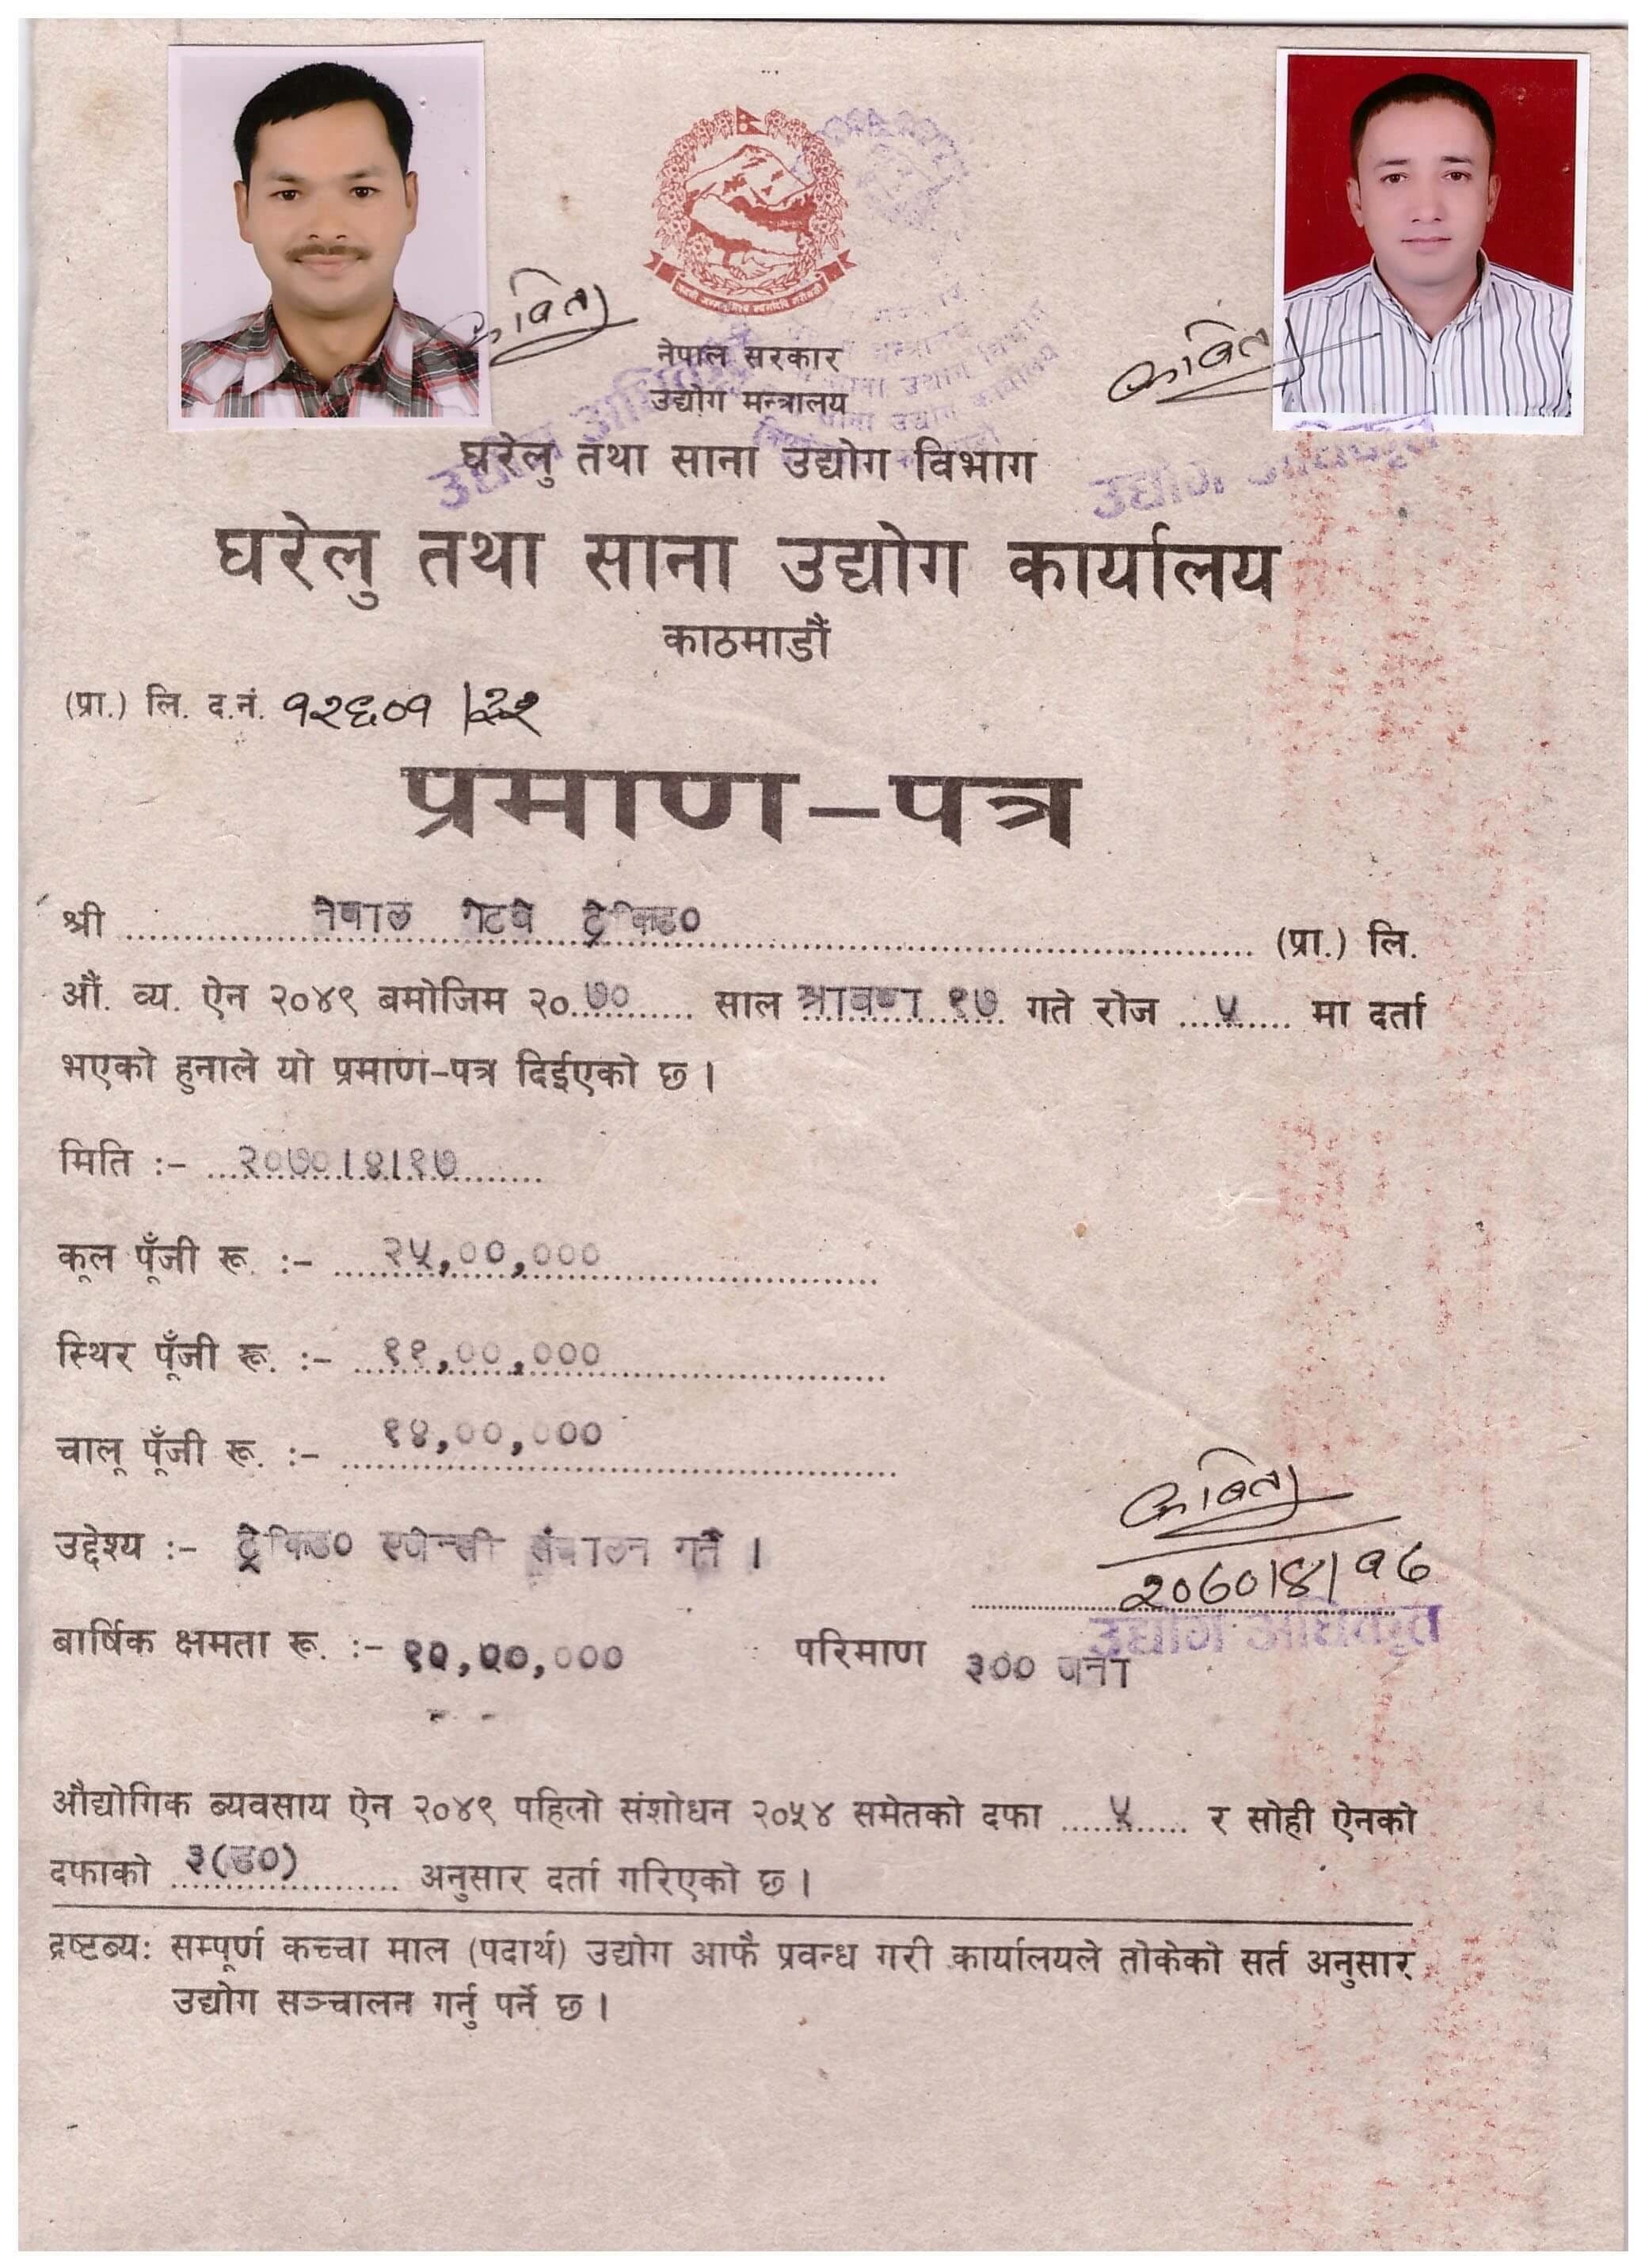 नेपाल सरकार
उद्योग मन्त्रालय
घरेलु तथा साना उद्योग विभाग
घरेलु तथा साना उद्योग कार्यालय
काठमाडौं
(प्रा.) लि. द.नं. १२६०१
प्रमाण-पत्र
श्री नेपाल गेटवे ट्रेकिङ० (प्रा.) लि.
औं. व्य. ऐन २०४९ बमोजिम २०७० साल श्रावण १७ गते रोज ५ मा दर्ता
भएको हुनाले यो प्रमाण-पत्र दिईएको छ ।
मिति :- २०७०।४।१७
कूल पूँजी रू. :- २५,००,०००
स्थिर पूँजी रू. :- ११,००,०००
चालू पूँजी रू. :- १४,००,०००
कविता
उद्देश्य :- ट्रेकिङ० एजेन्सी संचालन गर्ने ।
२०७०।४।१७
उद्योग अधिकृत
बार्षिक क्षमता रू. :- परिमाण ३०० जना
औद्योगिक ब्यवसाय ऐन २०४९ पहिलो संशोधन २०५४ समेतको दफा ५ र सोही ऐनको
दफाको ३(ङ०) अनुसार दर्ता गरिएको छ ।
द्रष्टब्य: सम्पूर्ण कच्चा माल (पदार्थ) उद्योग आफै प्रवन्ध गरी कार्यालयले तोकेको सर्त अनुसार
उद्योग सञ्चालन गर्नु पर्ने छ ।